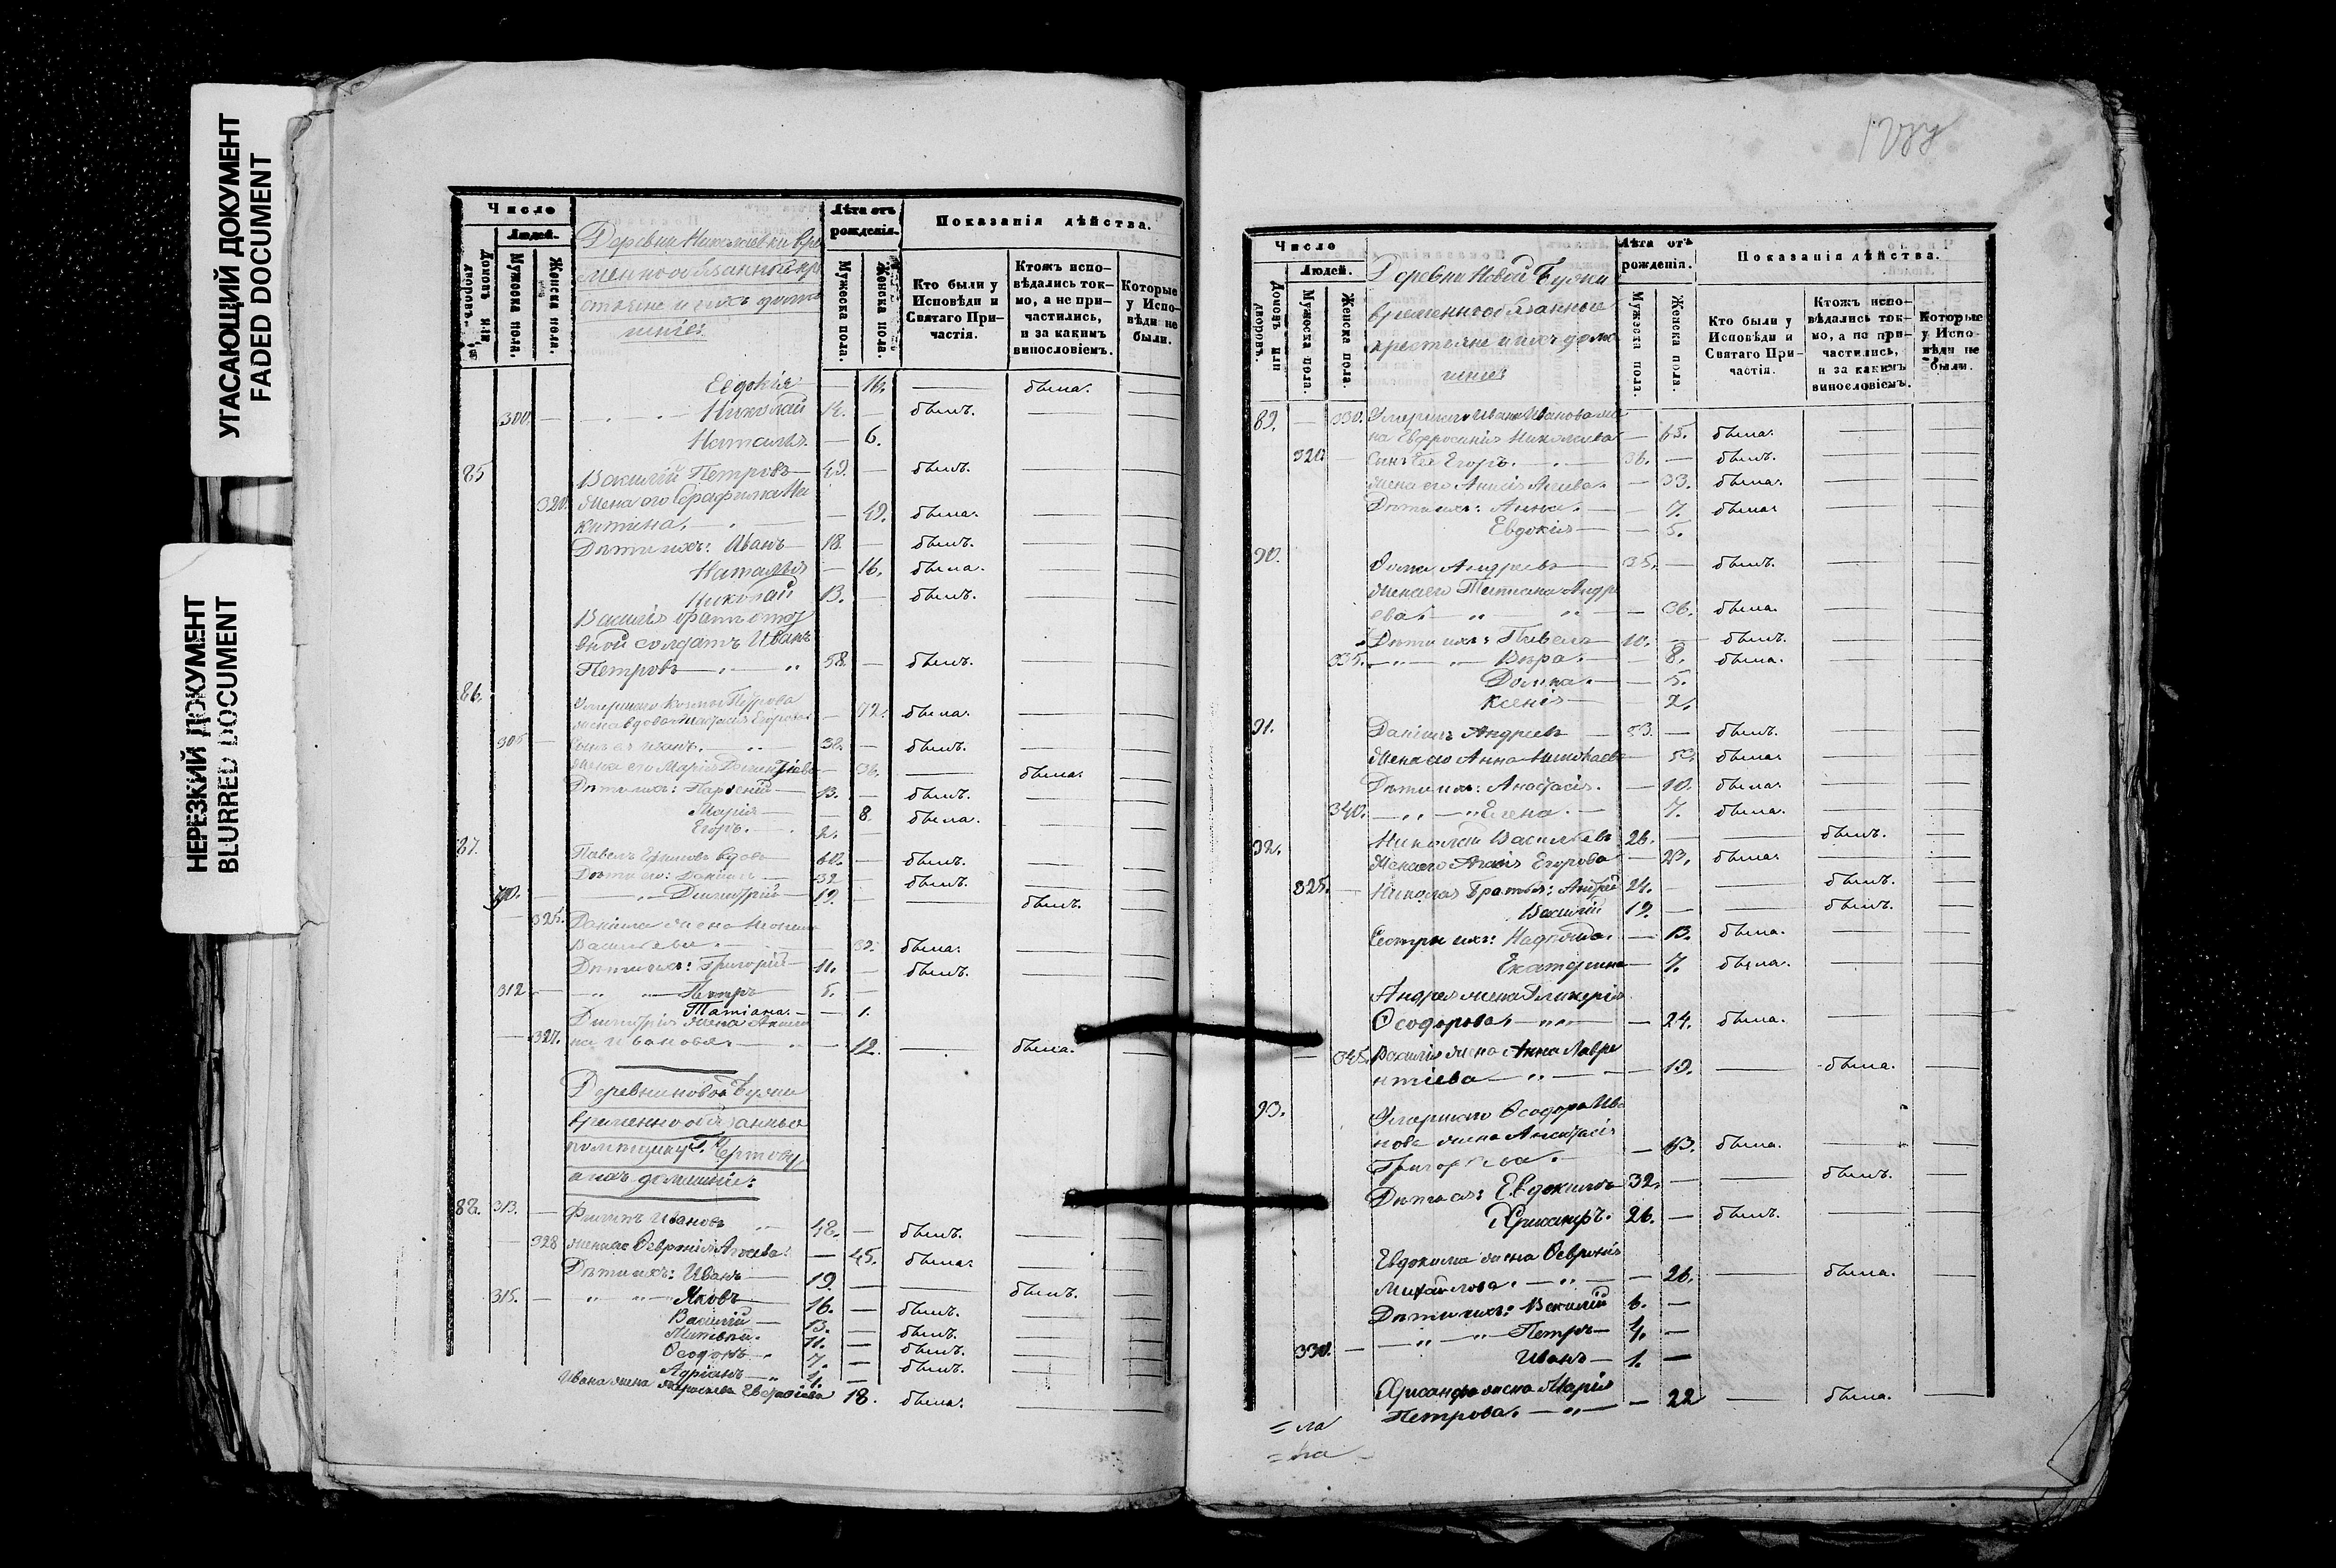 УГАСАЮЩИЙ ДОКУМЕНТ
FADED DOCUMENT
НЕРЕЗКИЙ ДОКУМЕНТ
BLURRED DOCUMENT
Число
Людей.
Домовъ или дворовъ.
Мужеска пола.
Женска пола.
Деревни Николаевки вре
менно обязанные кр
стьяне и ихъ дома
шніе
Лѣта отъ рожденія.
Мужеска пола.
Женска пола.
Показанія дѣйства.
Кто были у Исповѣди и Святаго Причастія.
Ктожъ исповѣдались токмо, а не причастились, и за какимъ винословіемъ.
Которые у Исповѣди не были.
Евдокія — была.
300. Николай — былъ.
Наталья — 6.
85 Василій Петровъ 49. — былъ.
320. Жена его Серафима Ни
китина. — 49. была.
Дѣти ихъ: Иванъ 18. — былъ.
Наталья — 16. была.
Николай 13. — былъ.
Василія братъ отст
вной солдатъ Иванъ
Петровъ 58. — былъ.
86. Умершаго Космы Петрова
жена вдова Анастасія Егорова — была.
305 Сынъ ея Иванъ. 38. — былъ.
Жена его Марія Дементіева — 36. — была.
Дѣти ихъ: Парѳеній 13. — былъ.
Марія — 8. была.
Егоръ. 2. —
87. Павелъ Ефимовъ вдовъ 60. — былъ.
Дѣти его: Даніилъ 32 — былъ.
Димитрій 19. — былъ.
325. Даніила жена
Васильева. — 32. была.
Дѣти ихъ: Григорій 11. — былъ.
312 — Петръ 5. —
Татіана. — 1.
Димитрія жена Акили
327. на Иванова. — 19. — была.
Деревни новой Бучки
временно обязанные
помѣщику Г. Черткову
ихъ домашніе:
88. 313. Филиппъ Ивановъ 48. — былъ.
328 жена его Февронія Агѣева. — 45. была.
Дѣти ихъ: Иванъ 19. — былъ.
315. Яковъ 16. — былъ.
Василій 13. — былъ.
Матвѣй. 11. — былъ.
Ѳеодоръ 7. — былъ.
Адріанъ 4. —
Ивана жена 18. была.
Число
Людей.
Домовъ или дворовъ.
Мужеска пола.
Женска пола.
Деревни Новой Бучки
временно обязанные
крестьяне и ихъ дома
шніе
Лѣта отъ рожденія.
Мужеска пола.
Женска пола.
Показанія дѣйства.
Кто были у Исповѣди и Святаго Причастія.
Ктожъ исповѣдались токмо, а не причастились, и за какимъ винословіемъ.
Которые у Исповѣди не были.
89. — 330. Умершаго Ивана Иванова же
на Евфросинія Николаева — 65. была.
320. Сынъ Ея Егоръ. 36. — былъ.
Жена его Анисія Агѣева. — 33. была.
Дѣти ихъ: Анна. — 7. была.
Евдокія — 5.
90. Ѳома Андреевъ 35. — былъ.
Жена его Татіана Андре
ева. — 36. была.
Дѣти ихъ: Павелъ 10. — былъ.
335. Вѣра. — 8. была.
Домна. — 5.
Ксенія — 2.
91. Даніилъ Андреевъ 53. — былъ.
Жена его Анна Николаева — 53. была.
Дѣти ихъ: Анастасія. — 10. была.
340. Елена. — 7. была.
92. Николай Васильевъ 26. — былъ.
Жена его Агаѳія Егорова — 23. была.
325. Николая Братья: Андрей 24. — былъ.
Василій 19. — былъ.
Сестры ихъ: Надежда. — 13. была.
Екатерина — 7. была.
Андрея жена Гликерія
Ѳеодорова. — 24. была.
345. Василія жена Анна Лавре
нтіева — 19. — была.
93. Умершаго Ѳеодора Ива
нова жена Анастасія
Григорьева. — 63. была.
Дѣти ея: Евдокимъ 32. — былъ.
Хрисанфъ. 26. — былъ.
Евдокима жена Февронія
Михайлова. — 26. — была.
Дѣти ихъ: Василій 6. —
Петръ 4. —
330. Иванъ 1. —
Хрисанфа жена Марія
Петрова. — 22 — была.
= ла
= на